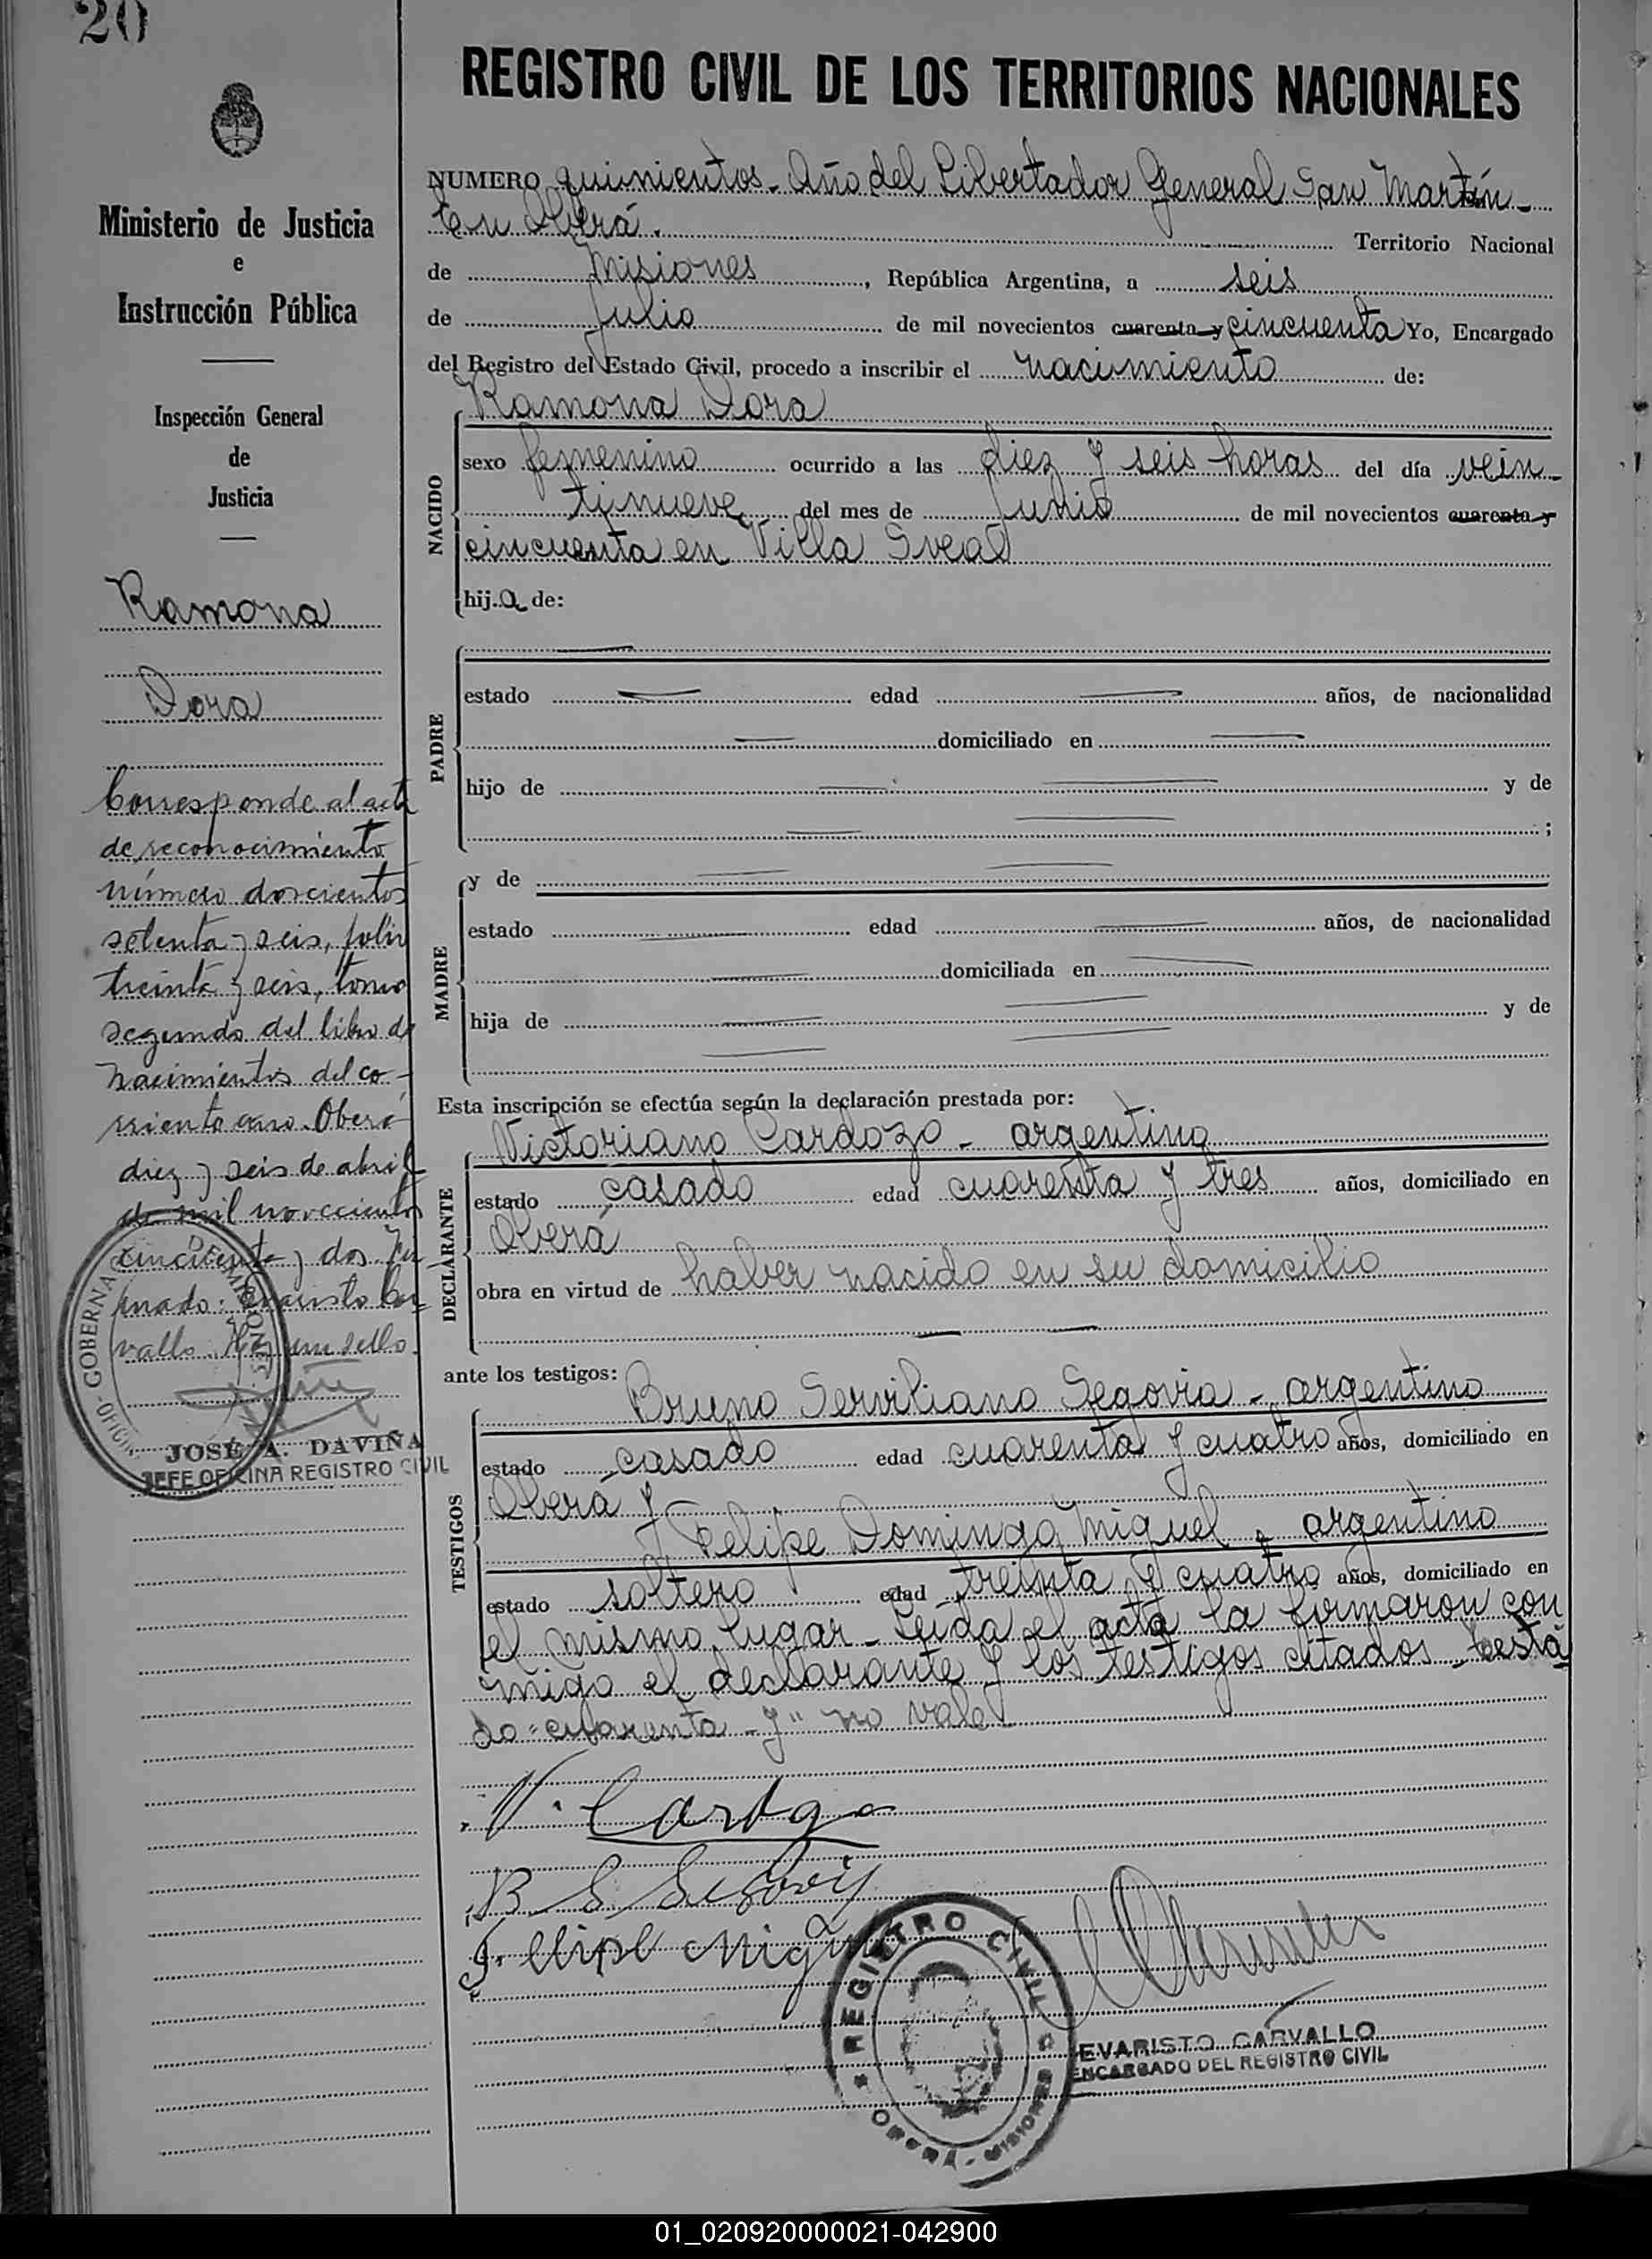 20
REGISTRO CIVIL DE LOS TERRITORIOS NACIONALES
Ministerio de Justicia
e
Instrucción Pública
Inspección General
de
Justicia
Ramona
Dora
Corresponde al acta
de reconocimiento
número doscientos
setenta y seis, folio
treinta y seis, tomo
segundo del libro de
nacimientos del co-
rriente año. Oberá
diez y seis de abril
de mil novecientos
cincuenta y dos. Fir-
mado: Evaristo Car-
vallo. Hay un sello.
JOSÉ A. DAVIÑA
JEFE OFICINA REGISTRO CIVIL
NUMERO quinientos - Año del Libertador General San Martín -
En Oberá. Territorio Nacional
de Misiones, República Argentina, a seis
de Julio de mil novecientos cuarenta y cincuenta Yo, Encargado
del Registro del Estado Civil, procedo a inscribir el nacimiento de:
NACIDO
Ramona Dora
sexo femenino ocurrido a las diez y seis horas del día vein-
tinueve del mes de Junio de mil novecientos cuarenta y
cincuenta en Villa Svea
hija de:
PADRE
estado edad años, de nacionalidad
domiciliado en
hijo de y de
;
MADRE
y de
estado edad años, de nacionalidad
domiciliada en
hija de y de
Esta inscripción se efectúa según la declaración prestada por:
DECLARANTE
Victoriano Cardozo - argentino
estado casado edad cuarenta y tres años, domiciliado en
Oberá
obra en virtud de haber nacido en su domicilio
ante los testigos:
TESTIGOS
Bruno Serviliano Segovia - argentino
estado casado edad cuarenta y cuatro años, domiciliado en
Oberá y
Felipe Domingo Miguel - argentino
estado soltero edad treinta y cuatro años, domiciliado en
el mismo lugar - Leída el acta la firmaron con
migo el declarante y los testigos citados - Testa
do "cuarenta - y" no vale
V. Cardozo
B S Segovia
Felipe Miguel
REGISTRO CIVIL
OBERÁ - MISIONES
EVARISTO CARVALLO
ENCARGADO DEL REGISTRO CIVIL
01_020920000021-042900